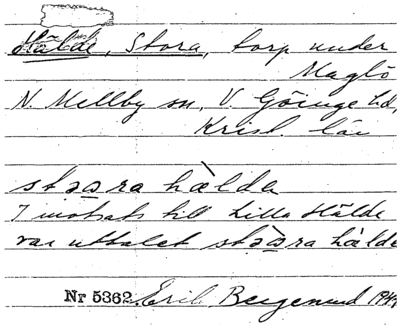 Hälde, Stora, torp under
Maglö
N. Mellby sn, V. Göinge hd,
Krist. län
stɔɔra hàlda
I motsats till Lilla Hälde
var uttalet stɔ̀ɔra hàlda
Nr 5362. Erik Bergmund 1949